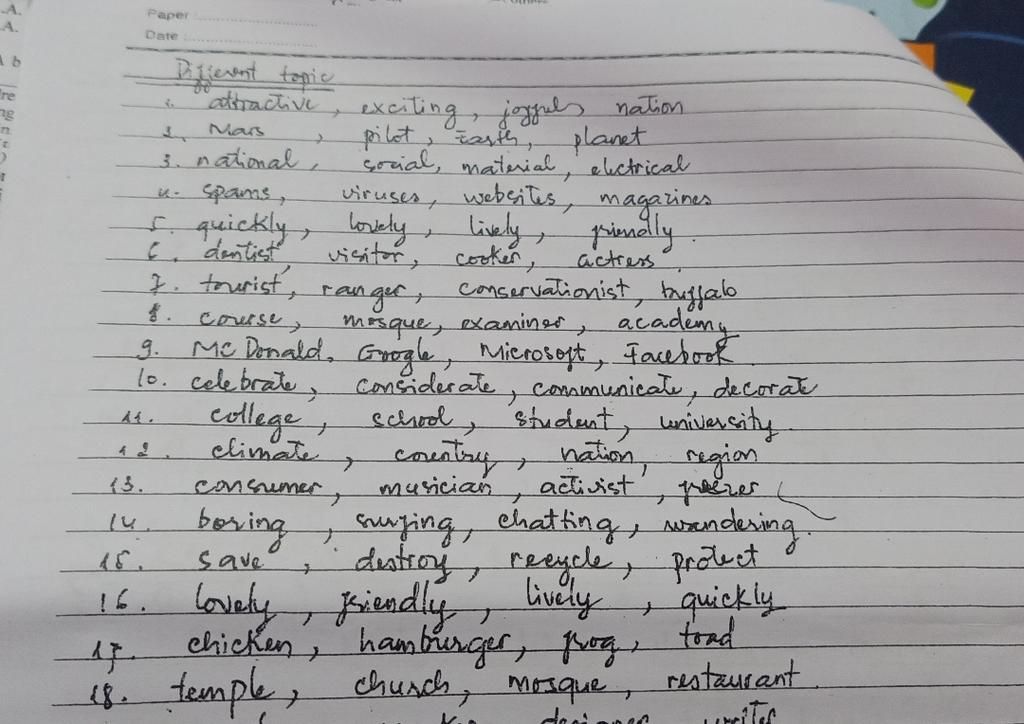 Paper :
Date :
Different topic
1. attractive, exciting, joyful, nation
2. Mars, pilot, Earth, planet
3. national, social, material, electrical
4. spams, viruses, websites, magazines
5. quickly, lovely, lively, friendly
6. dentist, visitor, cooker, actress
7. tourist, ranger, conservationist, buffalo
8. course, mosque, examiner, academy
9. McDonald, Google, Microsoft, Facebook
10. celebrate, considerate, communicate, decorate
11. college, school, student, university
12. climate, country, nation, region
13. consumer, musician, activist, freezer
14. boring, surfing, chatting, wandering
15. save, destroy, recycle, protect
16. lovely, friendly, lively, quickly
17. chicken, hamburger, frog, toad
18. temple, church, mosque, restaurant
designer writer